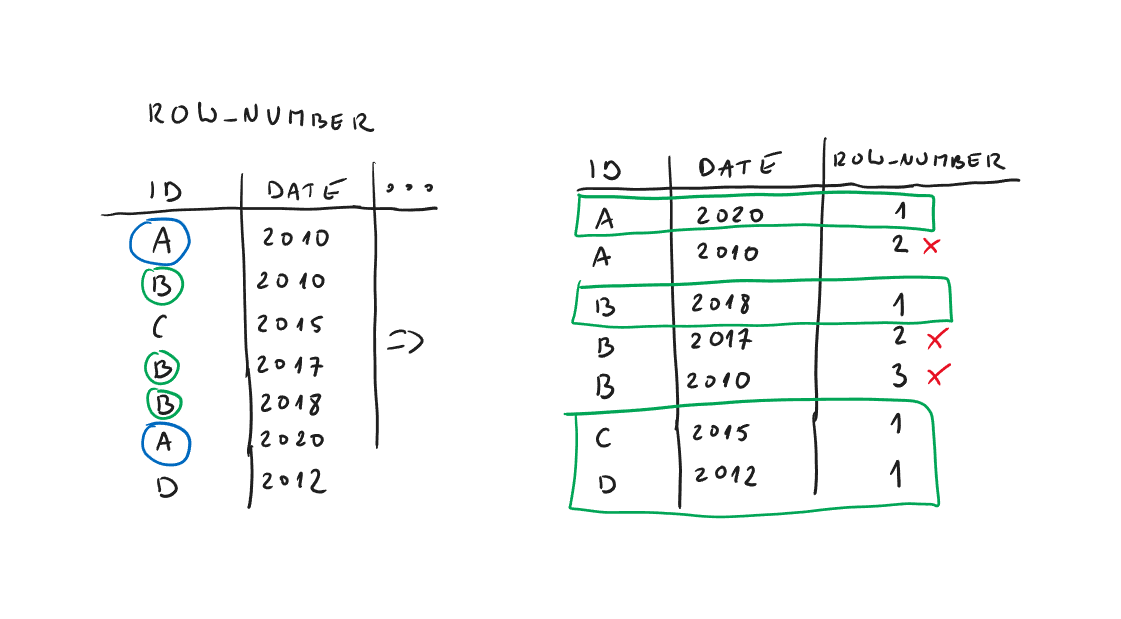 ROW_NUMBER
ID DATE ...
A 2010
B 2010
C 2015
B 2017
B 2018
A 2020
D 2012
=>
ID DATE ROW_NUMBER
A 2020 1
A 2010 2 x
B 2018 1
B 2017 2 x
B 2010 3 x
C 2015 1
D 2012 1